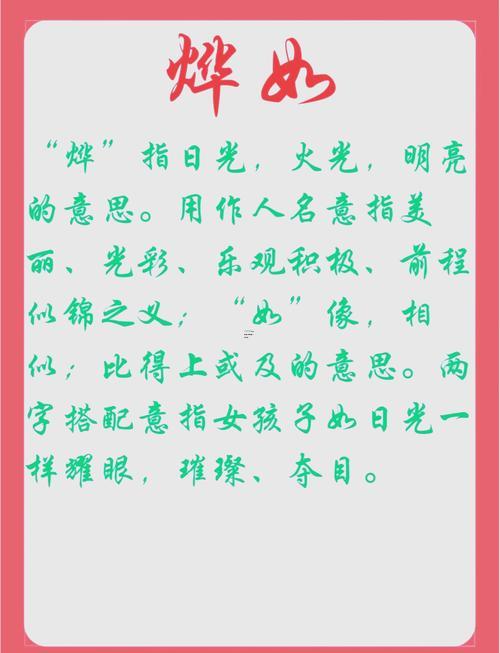 烨如
“烨”指日光，火光，明亮
的意思。用作人名意指美
丽、光彩、乐观积极、前程
似锦之义；“如”像，相
似；比得上或及的意思。两
字搭配意指女孩子如日光一
样耀眼，璀璨、夺目。